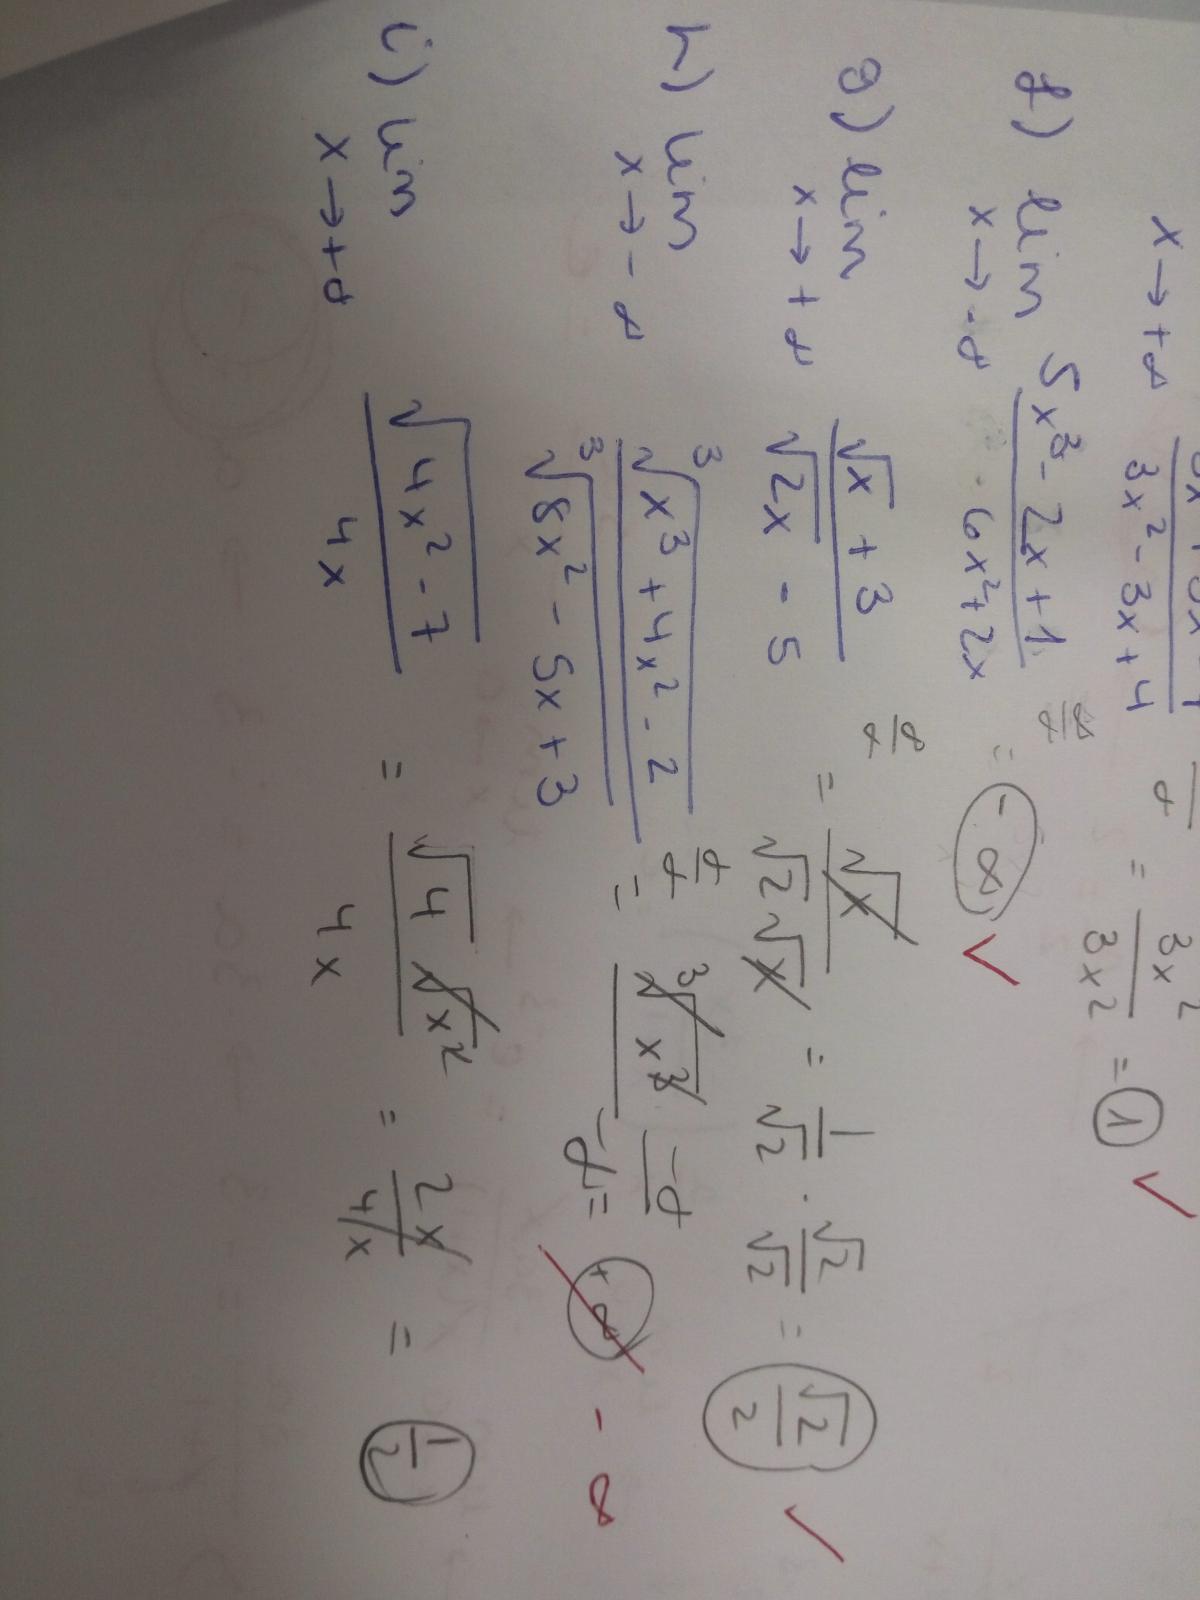 lim x→+∞ 3x² - 3x + 4 = 3x² / 3x² = 1 ✓
f) lim x→-∞ (5x³ - 2x + 1) / (6x² + 2x) ∞/∞ = -∞ ✓
g) lim x→+∞ (√x + 3) / (√2x - 5) ∞/∞ = √x / √2 √x = 1/√2 · √2/√2 = √2/2 ✓
h) lim x→-∞ ∛(x³ + 4x² - 2) / ∛(8x² - 5x + 3) ∞/∞ = ∛x³ -∞ / -∞ = +∞ - ∞
i) lim x→+∞ √(4x² - 7) / 4x = √4 √x² / 4x = 2x / 4x = 1/2